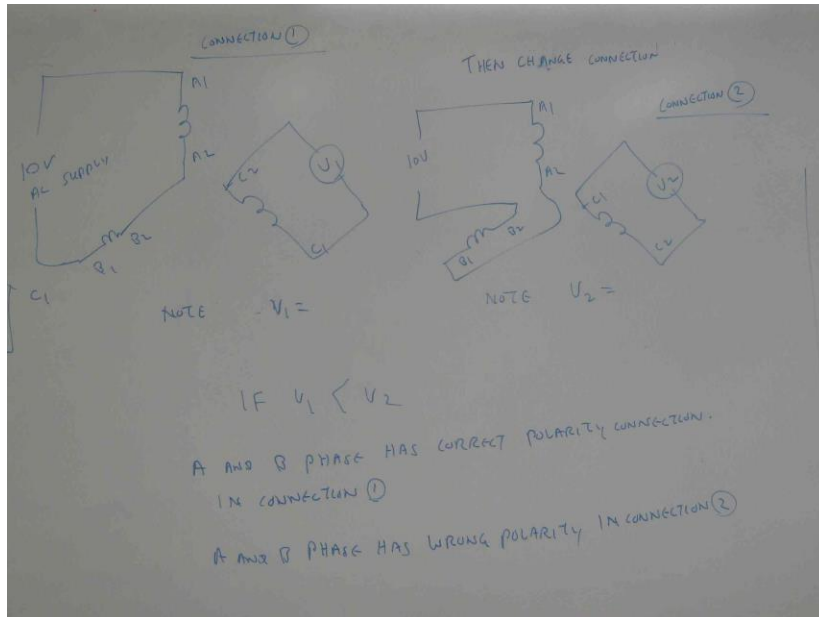 CONNECTION 1
THEN CHANGE CONNECTION
CONNECTION 2
A1
A2
10V
AC SUPPLY
B2
B1
C1
C2
V1
C1
A1
A2
10V
B2
B1
C1
V2
C2
NOTE V1 =
NOTE V2 =
IF V1 < V2
A AND B PHASE HAS CORRECT POLARITY CONNECTION.
IN CONNECTION 1
A AND B PHASE HAS WRONG POLARITY IN CONNECTION 2